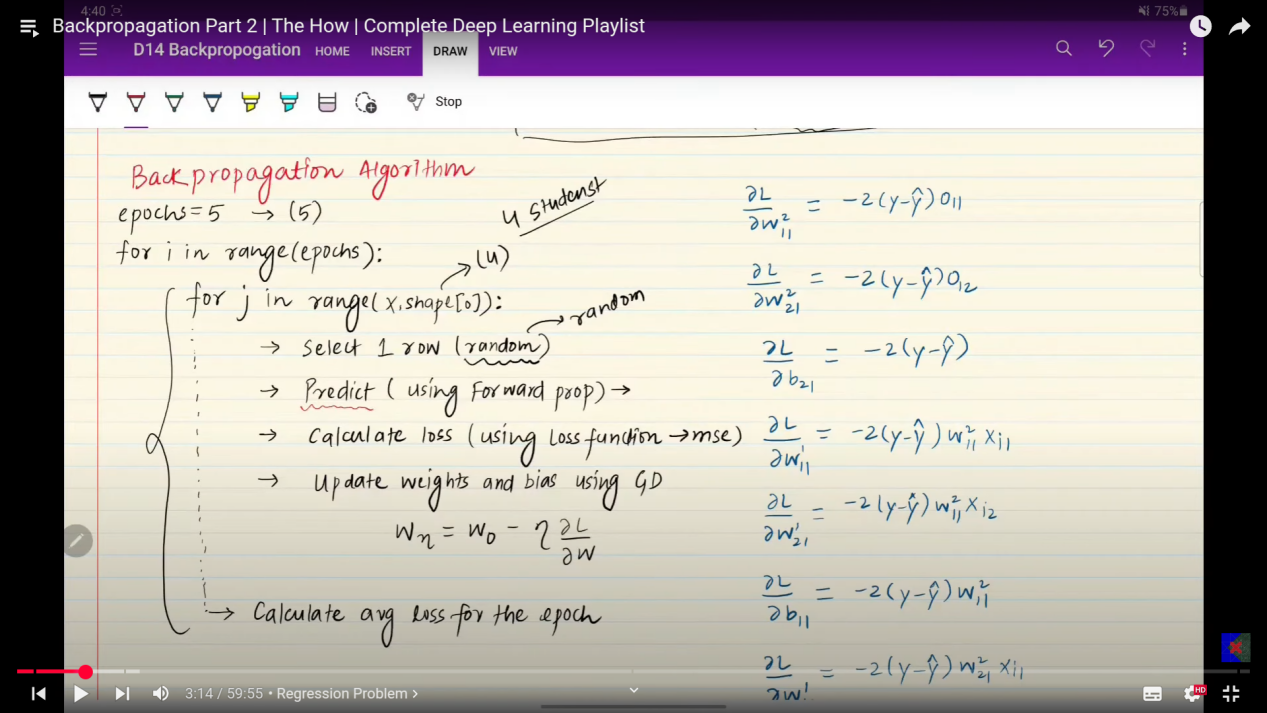 4:40
75%
Backpropagation Part 2 | The How | Complete Deep Learning Playlist
D14 Backpropogation HOME INSERT DRAW VIEW
Stop
Backpropagation Algorithm
epochs=5 → (5)
4 Studenst
for i in range(epochs):
→ (4)
for j in range(X.shape[0]):
→ random
→ Select 1 row (random)
→ Predict (using Forward prop) →
→ Calculate loss (using Loss function → mse)
→ Update weights and bias using GD
Wn = W0 - η ∂L/∂W
→ Calculate avg loss for the epoch
∂L/∂W²11 = -2(y-ŷ)O11
∂L/∂W²21 = -2(y-ŷ)O12
∂L/∂b21 = -2(y-ŷ)
∂L/∂W¹11 = -2(y-ŷ)W²11 Xi1
∂L/∂W¹21 = -2(y-ŷ)W²11 Xi2
∂L/∂b11 = -2(y-ŷ)W²11
∂L/∂W¹ = -2(y-ŷ)W²21 Xi1
3:14 / 59:55 • Regression Problem >
HD